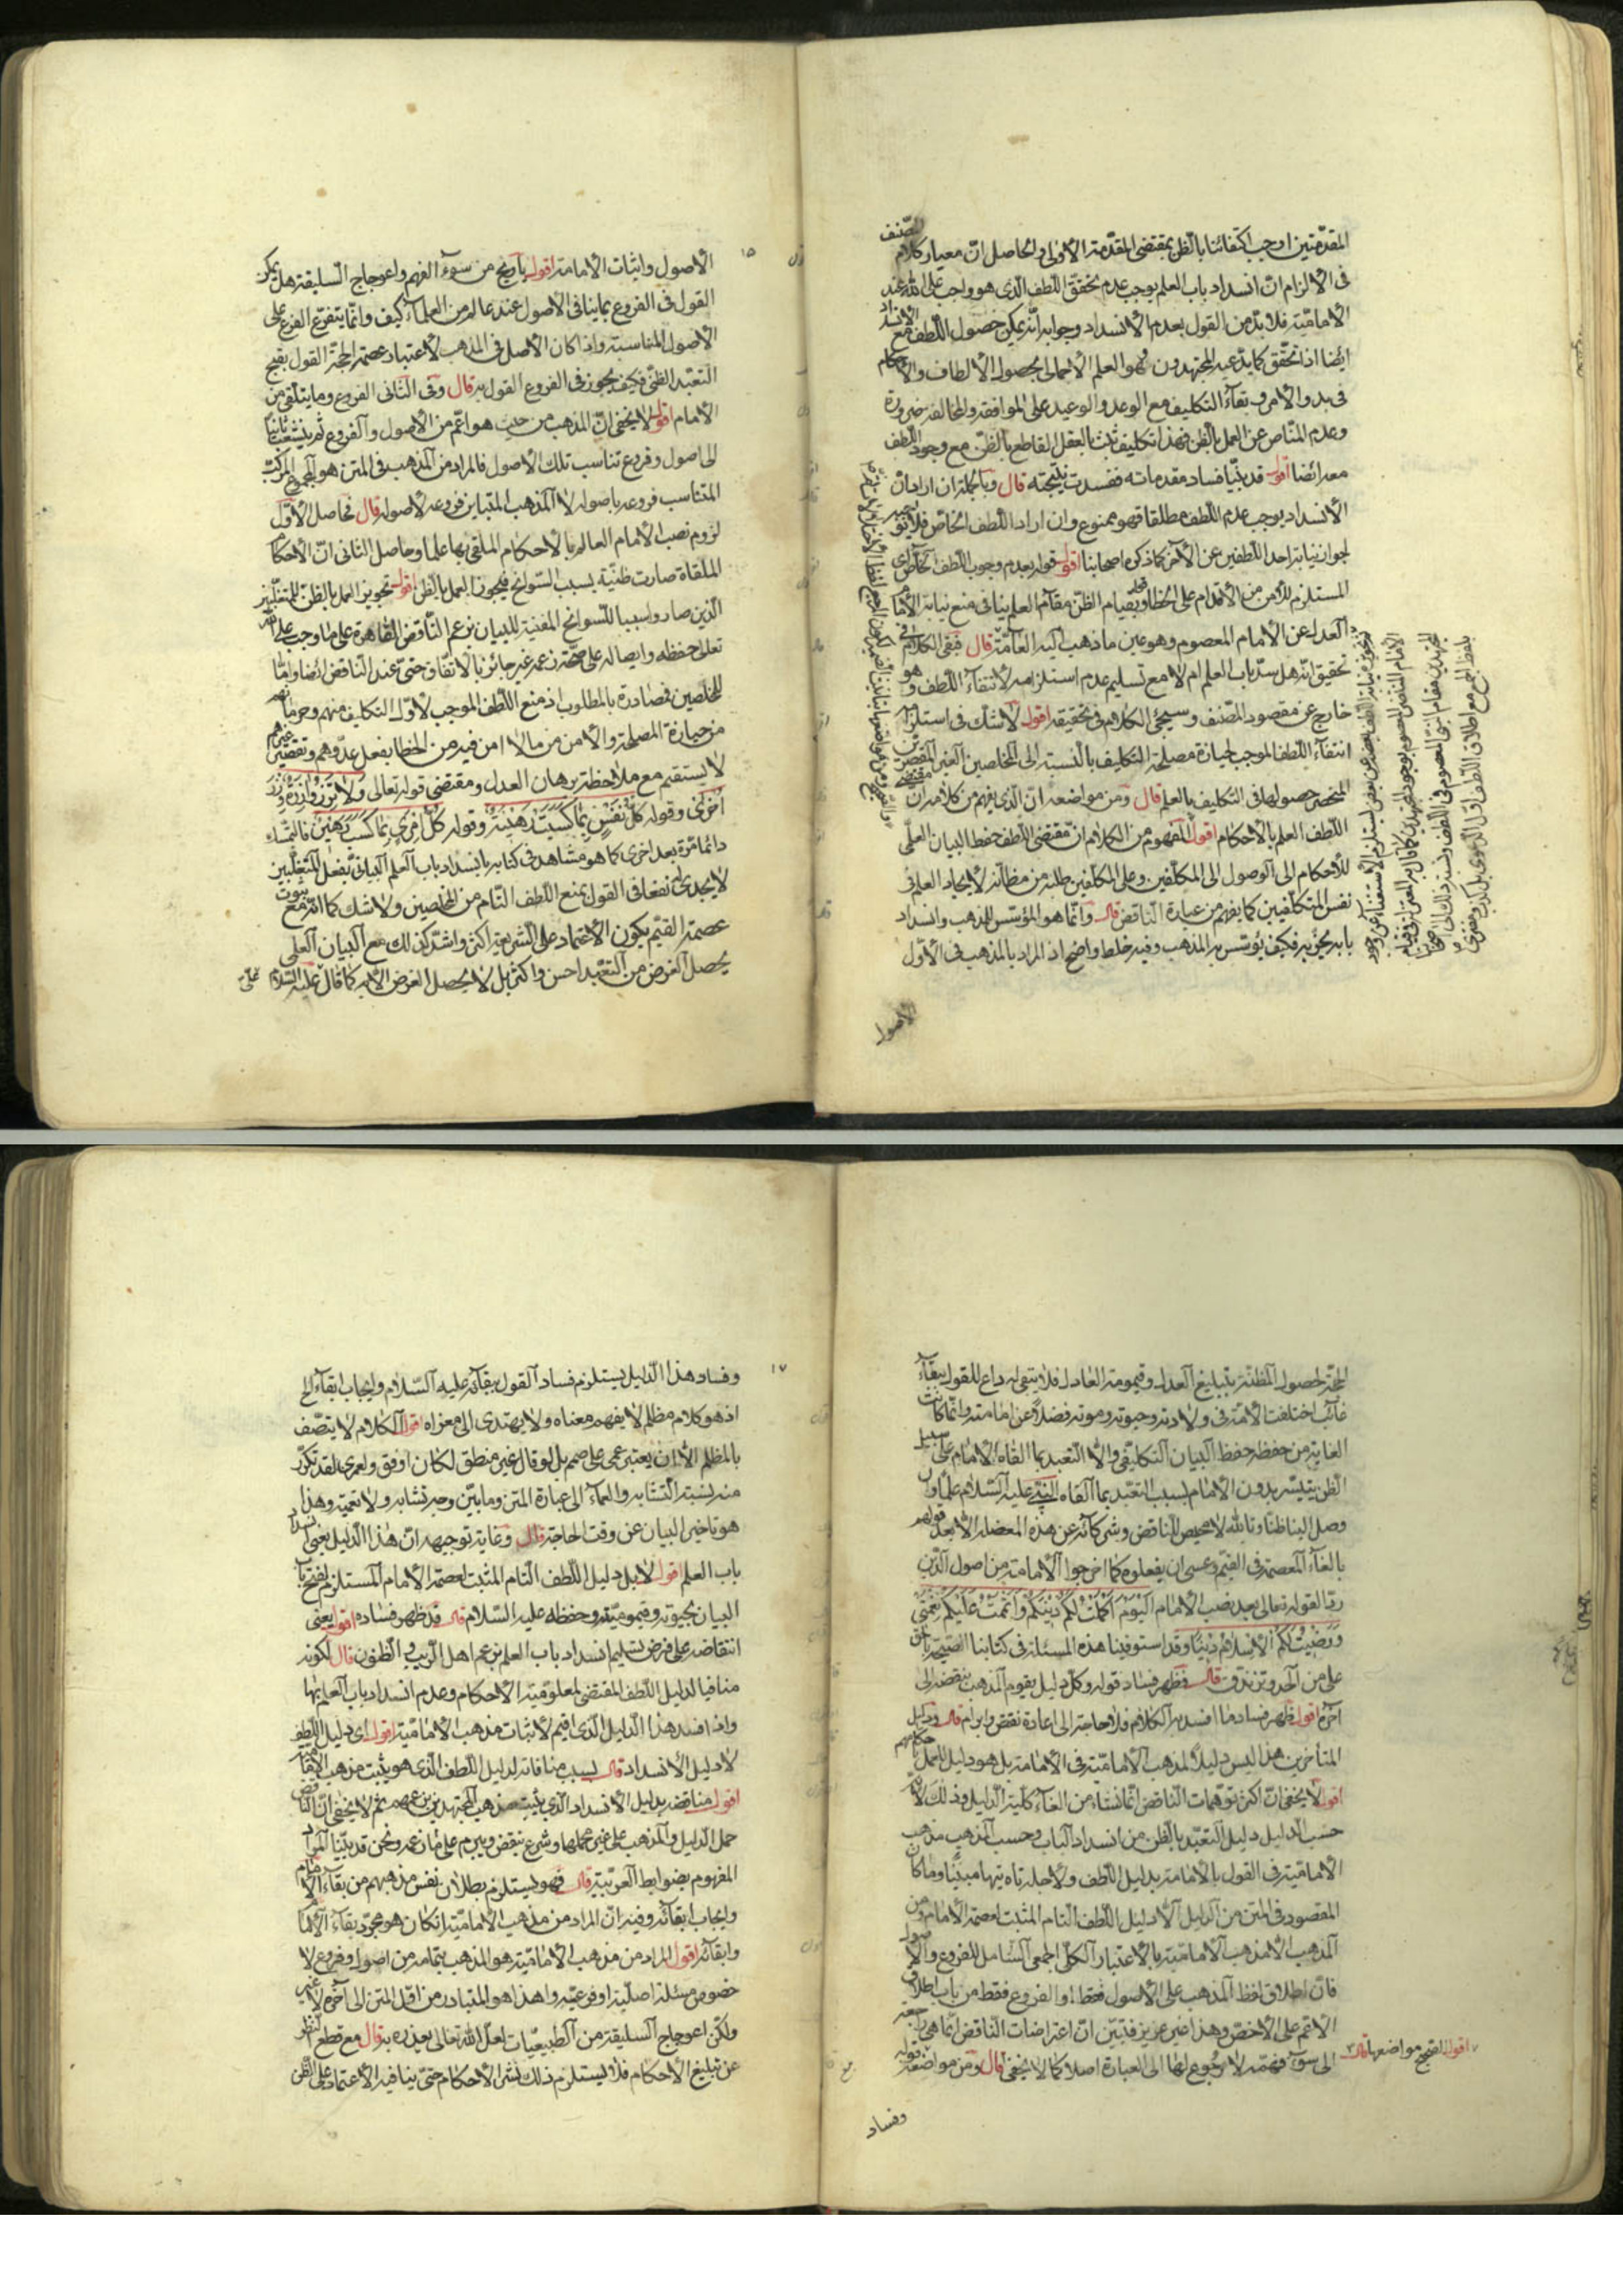 المقدّمتين اوجب اكتفائنا بالظن بمقتضى المقدّمة الأولى والحاصل انّ معيار كلام المصّنف
فى الالزام انّ انسداد باب العلم يوجب عدم تحقّق اللّطف الّذى هو واجب على الله عند
الأماميّة فلا بدّ من القول بعدم الأنسداد وجوابه انّه يمكن حصول اللّطف مع الأنسداد
ايضا اذا تحقّق كما يدّعيه المجتهدون وهو العلم الأجمالى بحصول الألطاف والأحكام
فى بدو الأمر وبقآء التكليف مع الوعد والوعيد على الموافقة والمخالفة ضرورة
وعدم المناص عن العمل بالظن فهذا تكليف ثابت بالعقل القاطع بالظنّ مع وجود اللّطف
معه ايضا اقول قد بيّنا فساد مقدماته ففسدت نتيجته قال وبالجملة ان اراد انّ
الأنسداد يوجب عدم اللّطف مطلقا فهو ممنوع وان اراد اللّطف الخاصّ فلا ضير
لجواز نيابة احد اللّطفين عن الآخر كما ذكره اصحابنا اقول قوله بعدم وجوب اللّطف الخاصّ اى
المستلزم للأمن من الأقدام على الخطاء وبقيام الظنّ مقام العلم ينافى منع نيابة الامام
العدل عن الأمام المعصوم وهو عين ما ذهب اليه العامّة قال فبقى الكلام فى
تحقيق انّه هل سدّ باب العلم ام لا مع تسليم عدم استلزامه لأنتفآء اللّطف وهو
خارج عن مقصود المصّنف وسيجئ الكلام فى تحقيقه اقول لا شك فى استلزامه
انتفآء اللّطف الموجب لحيازة مصلحة التكليف بالنسبة الى المخلصين الغير المقصّرين
المنحصر حصولها فى التكليف بالعلم قال ومن مواضعه انّ الّذى يفهم من كلامه انّ مقتضى
اللّطف العلم بالأحكام اقول المفهوم من الكلام انّ مقتضى اللّطف حفظ البيان العلمى
للأحكام الى الوصول الى المكلّفين وعلى المكلّفين طلبه من مظآنّه لا ايجاد العلم فى
نفس المتكلّفين كما يظهر من عبارة النّاقض قال وانّما هو المؤسّس للمذهب وانسداد
بابه يخرّبه فكيف يؤسّس به المذهب وفيه خلط واضح اذ المراد بالمذهب فى الأوّل
الأصول
١٥
الأصول واثبات الأمامة اقول يا ويح من سوء الفهم واعوجاج السليقة هل يمكن
القول فى الفروع بما ينافى الأصول عند عالم من العلمآء كيف وانّما يتفرّع الفرع على
الأصول المناسبة واذا كان الأصل فى المذهب لأعتبار عصمة الحجّة القول بقبح
التعبّد الظنّى فكيف يجوز فى الفروع القول به قال وفى الثانى الفروع وما يتلقّى من
الأمام اقول لا يخفى انّ المذهب من حيث هو اعمّ من الأصول والفروع ثمّ يتشعّب ثانيا
الى اصول وفروع تناسب تلك الأصول فالمراد من المذهب فى المتن هو المجموع المركّب
المتناسب فروعه باصوله لا المذهب المتباين فروعه لأصوله قال فحاصل الأوّل
لزوم نصب الأمام العالم بالأحكام الملقى بها علما وحاصل الثانى انّ الأحكام
الملقاة صارت ظنّية بسبب السّوانح فيجوز العمل بالظن اقول تجويز العمل بالظنّ للمتغلّبين
الّذين صاروا سببا للسّوانح المغنية للبيان بزعم النّاقض القاهرة على ما وجب على الله
تعالى حفظه وايصاله على صحّة زعمه غير جائز بالأتّفاق حتّى عند النّاقض ايضا وامّا
للمخلصين فمصادرة بالمطلوب اذ منع اللّطف الموجب لأوّل التكليف منهم وحرمانهم
من حيازة المصلحة والأمن من مالا امن فيه من الخطاء بفعل عدوّهم وتقصير غيرهم
لا يستقيم مع ملاحظة برهان العدل ومقتضى قوله تعالى وَلا تَزِرُ وازِرَةٌ وِزْرَ
اُخْرى وقوله كُلُّ نَفْسٍ بِما كَسَبَتْ رَهينَةٌ وقوله كُلُّ امْرِئٍ بِما كَسَبَ رَهينٌ فالتمسّك
دائما مرّة بعد اخرى كما هو مشاهد فى كتابه بانسداد باب العلم البيانى بفعل المتغلّبين
لا يجدى نفعا فى القول بمنع اللّطف التام من المخلصين ولا شك كما انّه مع ثبوت
عصمة القيّم يكون الأعتماد على الشريعة اكثر واشدّ كذلك مع البيان العلمى
يحصل الغرض من التعبّد احسن واكثر بل لا يحصل الغرض الّا به كما قال عليه السّلام
الحجّة لحصول المظنّة بتبليغ العدل وقيمومة العادل فلا يبقى له داع للقول ببقآء
غائب اختلفت الأمّة فى ولادته وحيوته وموته فضلا عن امامته وانّما كانت
الغاية من حفظه حفظ البيان التكليفى والّا التعبد بما القاه الأمام على سبيل
الظن يتيسّر بدون الأمام بسبب التعبّد بما القاه النّبى عليه السّلام علما وان
وصل الينا ظنّا وتالله لا محيص للنّاقض وشركآئه عن هذه المعضلة الّا بعد قولهم
بالغآء العصمة فى القيّم وعسى ان يفعلوه كما اخرجوا الأمامة من اصول الدّين
ردّا لقوله تعالى بعد نصب الأمام اَلْيَوْمَ اَكْمَلْتُ لَكُمْ دينَكُمْ وَاَتْمَمْتُ عَلَيْكُمْ نِعْمَتى
وَرَضيتُ لَكُمُ الْاِسْلامَ دينًا وقد استوفينا هذه المسئلة فى كتابنا الصيحة بالحق
على من الحد وتزندق قال فظهر فساد قوله وكلّ دليل يقوم المذهب بنقضه الى
آخره اقول ظهر فساد ما افسد به الكلام فلا حاجة الى اعادة نقض وابرام قال ودليل
المتأخرين هذا ليس دليلا لمذهب الأماميّة فى الأمامة بل هو دليل للعمل باحكامهم
اقول لا يخفى انّ اكثر توهّمات النّاقض انّما نشاء من الغآء كليّة الدّليل وذلك لأنّه
حسب الدليل دليل التعبّد بالظن من انسداد الباب وحسب المذهب مذهب
الأماميّة فى القول بالأمامة بدليل اللّطف ولأجله تاه تيها مبينا وما كان
المقصود فى المتن من الدليل الّا دليل اللّطف التام المثبت لعصمة الأمام ومن
المذهب الّا مذهب الأماميّة بالأعتبار الكلّى الجمعى الشامل للفروع والأصول
فانّ اطلاق لفظ المذهب على الأصول فقط او الفروع فقط من باب اطلاق
الأعمّ على الأخصّ وهذا غير عزيز فتبيّن انّ اعتراضات النّاقض انّما هى راجعة
الى سوء فهمه لا رجوع لها الى العبارة اصلا كما لا يخفى قال ومن مواضعه قوله
اقول اقبح مواضعها قال
وفساد
١٧
وفساد هذا الدّليل يستلزم فساد القول ببقآئه عليه السّلام وايجاب ابقآء الخ
اذ هو كلام مظلم لا يفهم معناه ولا يهتدى الى مغزاه اقول الكلام لا يتصّف
بالمظلم الّا ان يعتبر عمى على صمم بل لو قال غير منطق لكان اوفق ولعمرى لقد تكرّر
منه نسبة التشابه والعمآء الى عبارة المتن وما بيّن وجه تشابه ولا تعمية وهذا
هو تاخير البيان عن وقت الحاجة قال وغاية توجيهه انّ هذا الدّليل يعنى انسداد
باب العلم اقول لا بل دليل اللّطف التام المثبت لعصمة الأمام المستلزم لفتح باب
البيان بحيوته وقيموميّته وحفظه عليه السّلام قال قد ظهر فساده اقول يعنى
انتقاضه على فرض تسليم انسداد باب العلم بزعم اهل الريب والظنون قال لكونه
منافيا لدليل اللّطف المقتضى لمعلوميّة الأحكام وعدم انسداد باب العلم بها
واذا فسد هذا الدّليل الّذى اقيم لأثبات مذهب الأماميّة اقول اى دليل اللّطف
لا دليل الأنسداد قال بسبب منافاته لدليل اللّطف الّذى هو يثبت مذهب الأماميّة
اقول مناقضه بدليل الأنسداد الّذى يثبت مذهب المجتهدين بزعمهم ثم لا يخفى انّ النّاقض
حمل الدّليل والمذهب على غير محملها وشرع ينقض ويبرم على ما زعمه ونحن قد بيّنا المراد
المفهوم بضوابط العربيّة قال فهو يستلزم بطلان نفس مذهبهم من بقآء الأمام
وايجاب ابقآئه وفيه انّ المراد من مذهب الأماميّة ان كان هو مجرّد بقآء الأمام
وابقآئه اقول المراد من مذهب الأماميّة هو المذهب بتمامه من اصوله وفروعه لا
خصوص مسئلة اصليّة او فرعيّة وهذا هو المتبادر من اوّل المتن الى آخره لا غير
ولكن اعوجاج السليقة من الطبيعيّات لعلّ الله تعالى يعذره به قال مع قطع النّظر
عن تبليغ الأحكام فلا يستلزم ذلك نشر الأحكام حتّى ينافيه الأعتماد على الظن